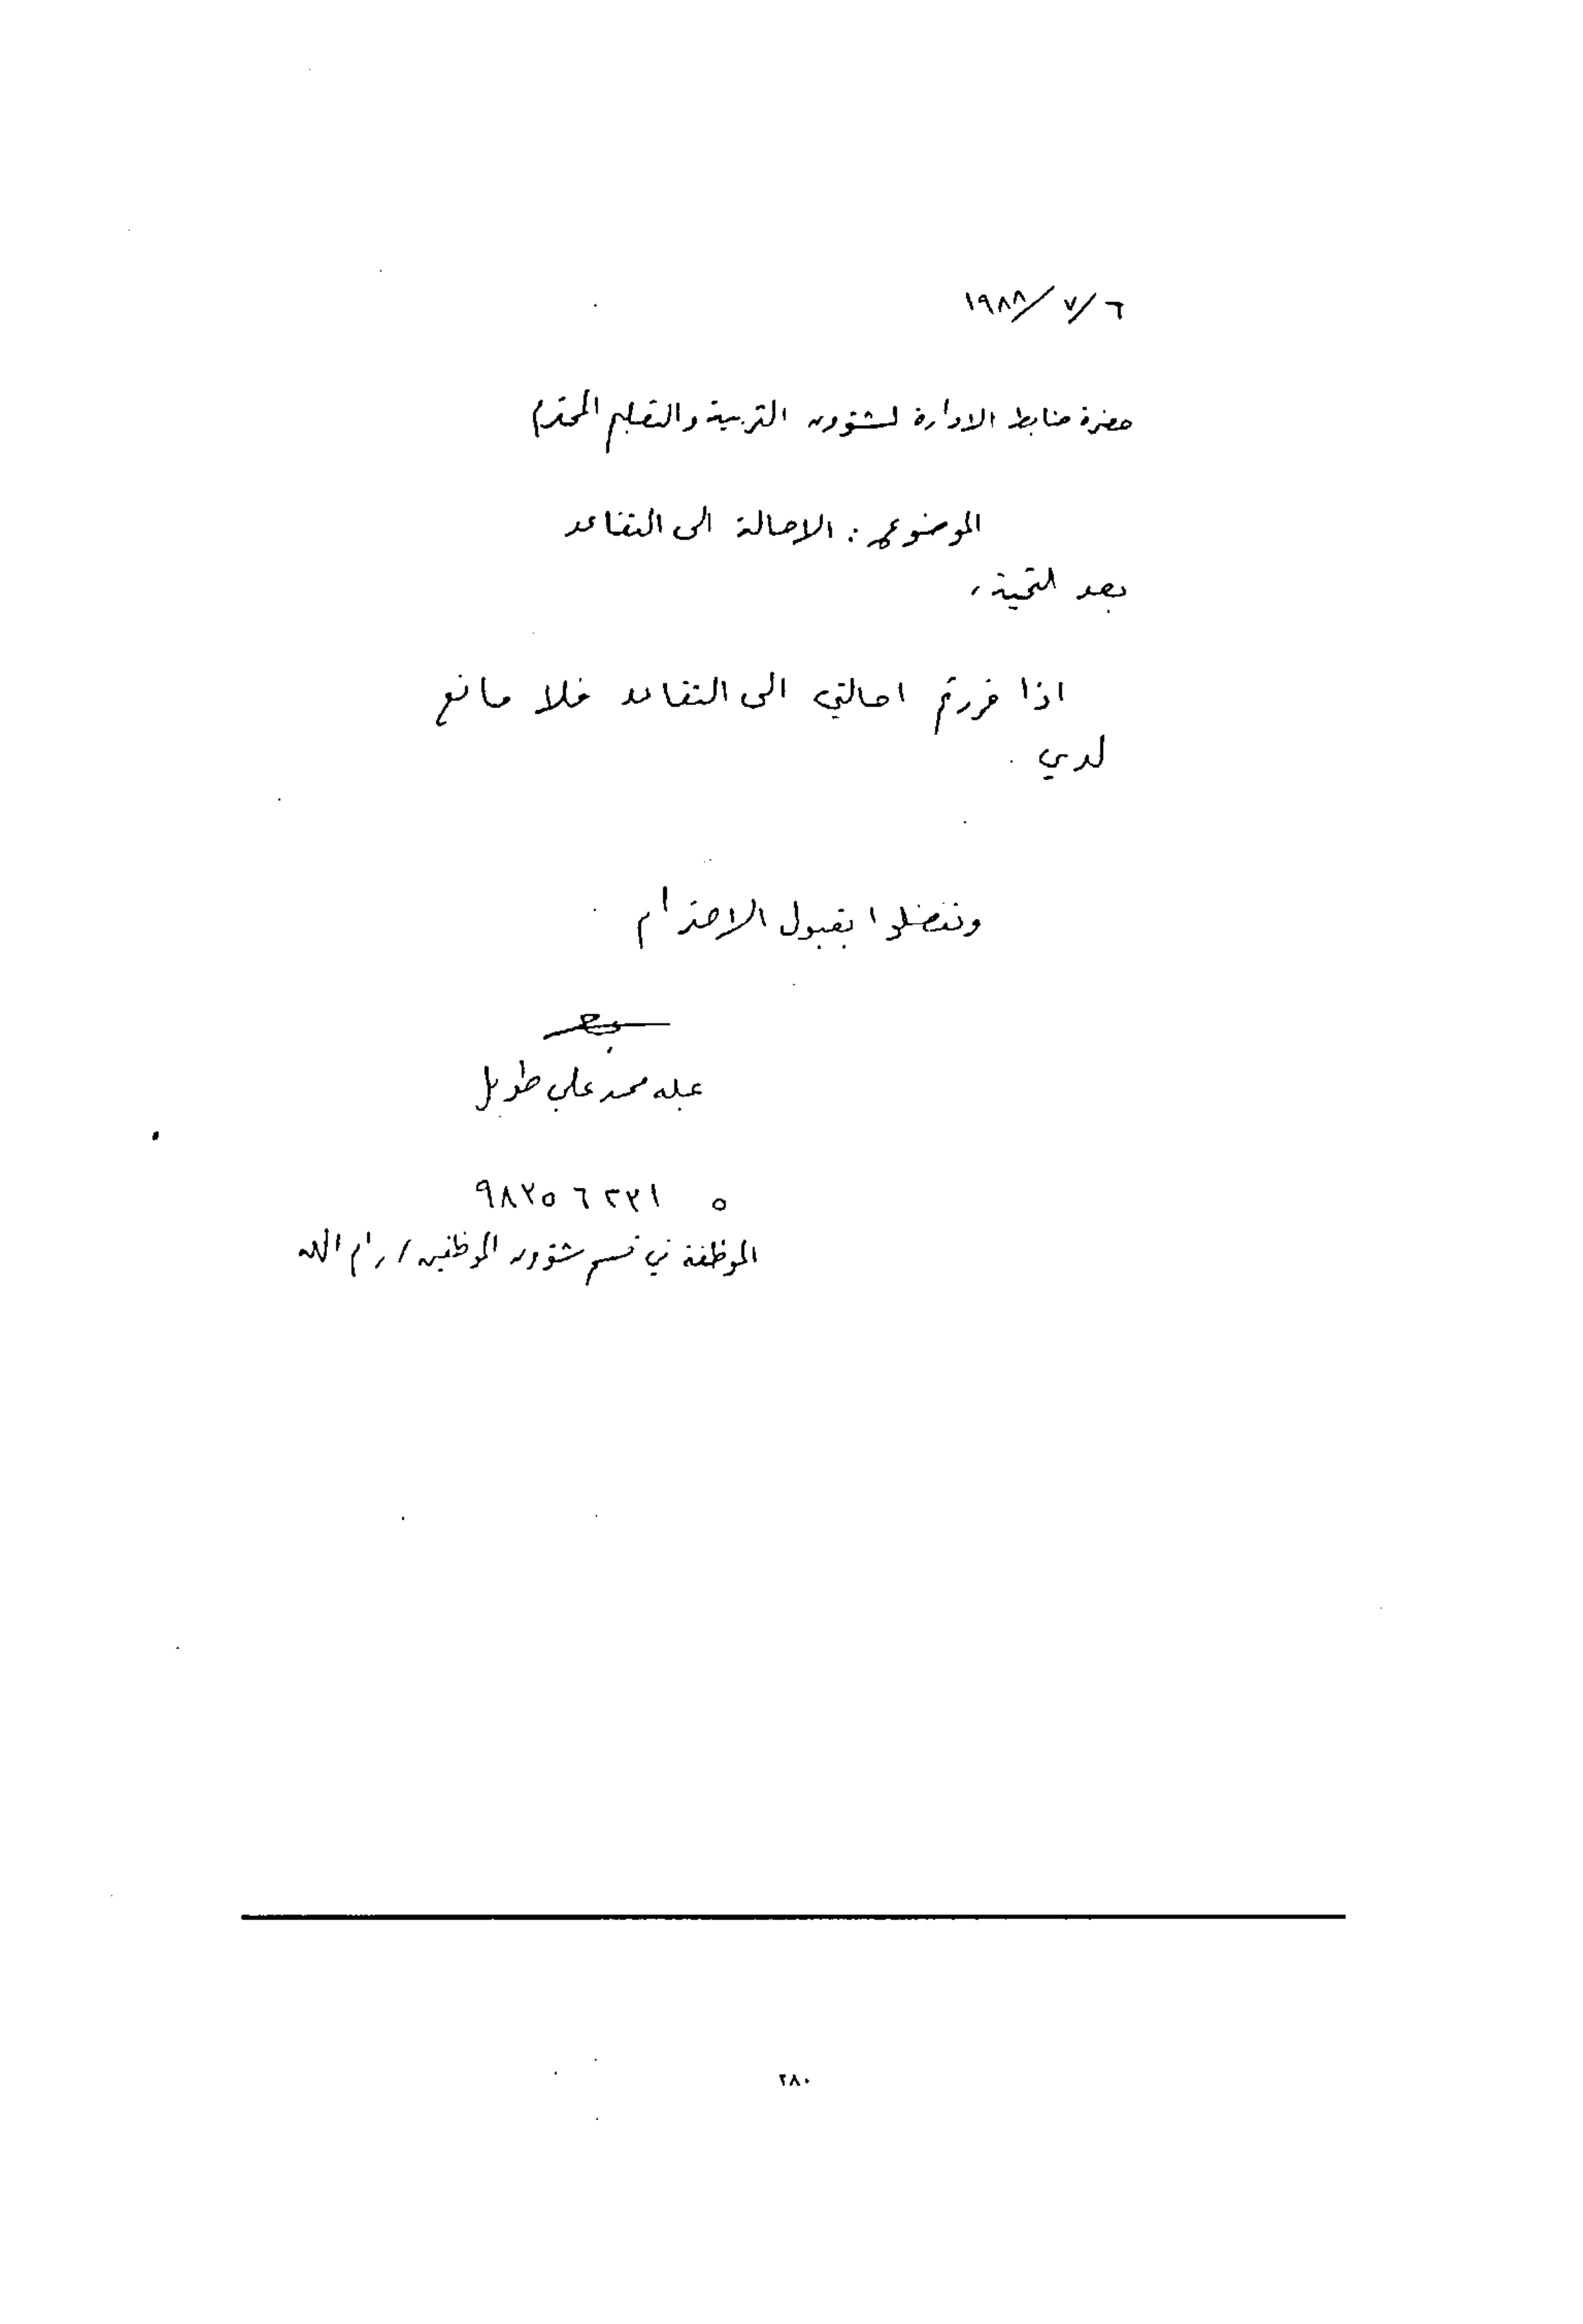 ٦/٧/١٩٨٨
حضرة ضابط الادارة لشؤون التربية والتعليم المحترم
الموضوع : الاحالة الى التقاعد
بعد التحية ،
اذا قررتم احالتي الى التقاعد فلا مانع
لدي .
وتفضلوا بقبول الاحترام
عبله محمد علي طويل
الموظفة في قسم شؤون الموظفين / رام الله
٢٨٠